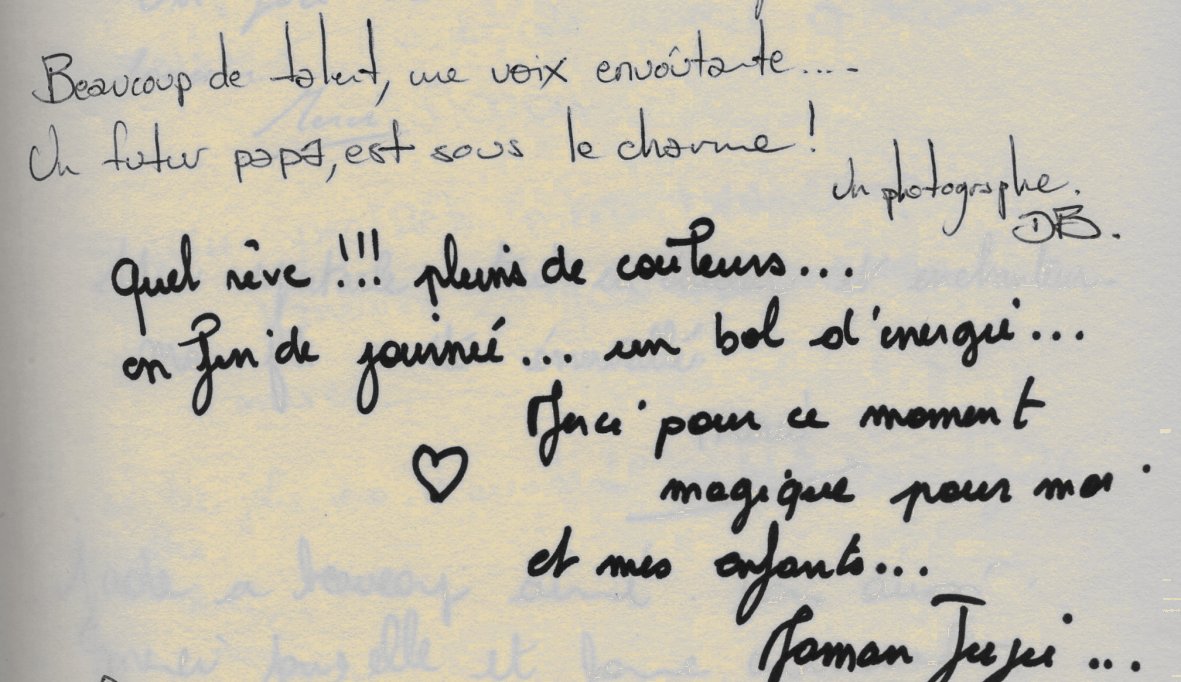 Beaucoup de talent, une voix envoûtante....
Un futur papa, est sous le charme !
Un photographe.
DB.
Quel rêve !!! pleins de couleurs...
en fin de journée... un bol d'énergie...
Merci pour ce moment
magique pour moi
et mes enfants...
Maman Juju...